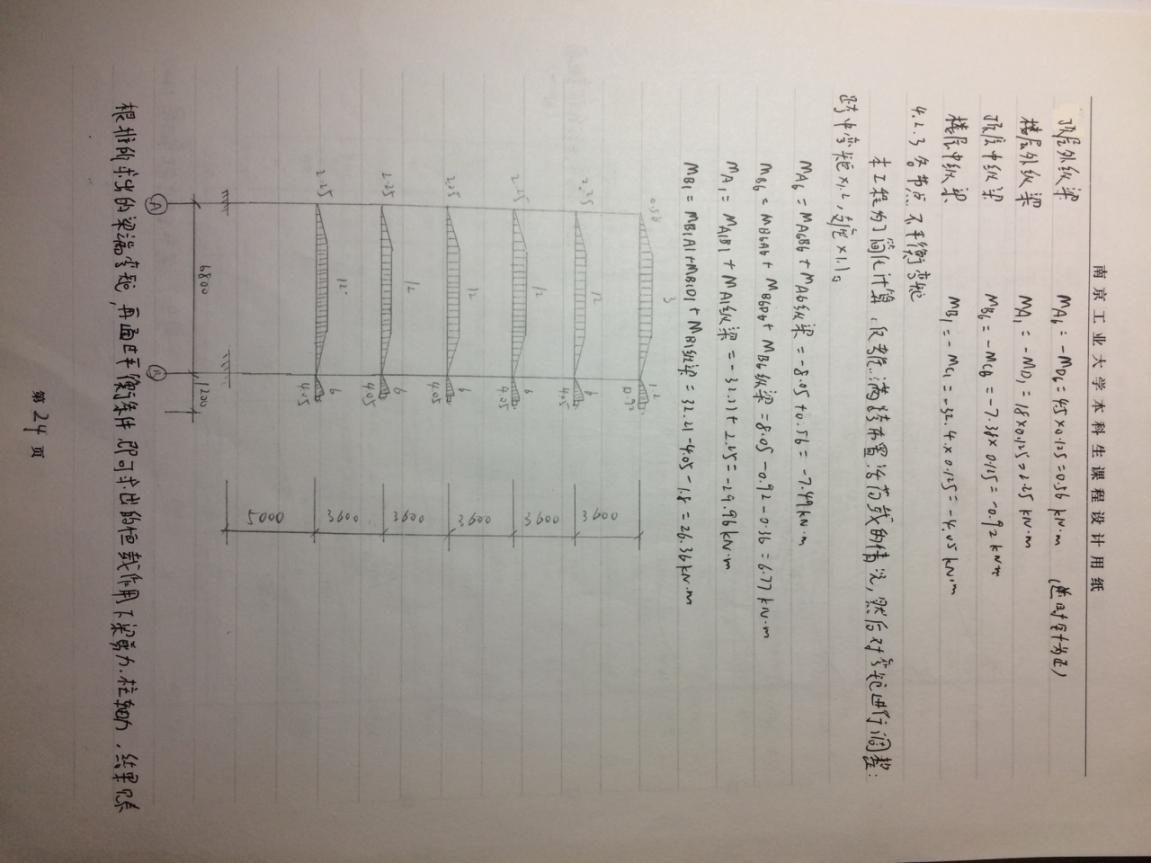 南京工业大学本科生课程设计用纸
顶层外纵梁 MA6 = -MD6 = 4.5×0.125 = 0.56 kN·m (逆时针为正)
楼层外纵梁 MA1 = -MD1 = 18×0.125 = 2.25 kN·m
顶层中纵梁 MB6 = -MC6 = -7.38×0.125 = -0.92 kN·m
楼层中纵梁 MB1 = -MC1 = -32.4×0.125 = -4.05 kN·m
4.2.3 各节点不平衡弯矩
本工程为了简化计算,仅考虑满跨布置活荷载的情况,然后对弯矩进行调整:
跨中弯矩×1.2,支座×1.1。
MA6 = MA6B6 + MA6纵梁 = -8.05+0.56 = -7.49 kN·m
MB6 = MB6A6 + MB6D6 + MB6纵梁 = 8.05-0.92-0.36 = 6.77 kN·m
MA1 = MA1B1 + MA1纵梁 = -32.21+2.25 = -29.96 kN·m
MB1 = MB1A1+MB1D1+MB1纵梁 = 32.21-4.05-1.8 = 26.36 kN·m
0.56 3 1.2 0.92
2.25 12 6 4.05 3600
2.25 12 6 4.05 3600
2.25 12 6 4.05 3600
2.25 12 6 4.05 3600
2.25 12 6 4.05 3600
5000
A 6800 B 1200
根据所求出的梁端弯矩,再通过平衡条件,即可求出的恒载作用下梁剪力、柱轴力,结果见表
第 24 页